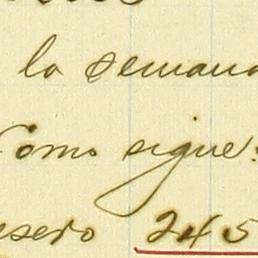 la semana
Como sigue:
esero 245